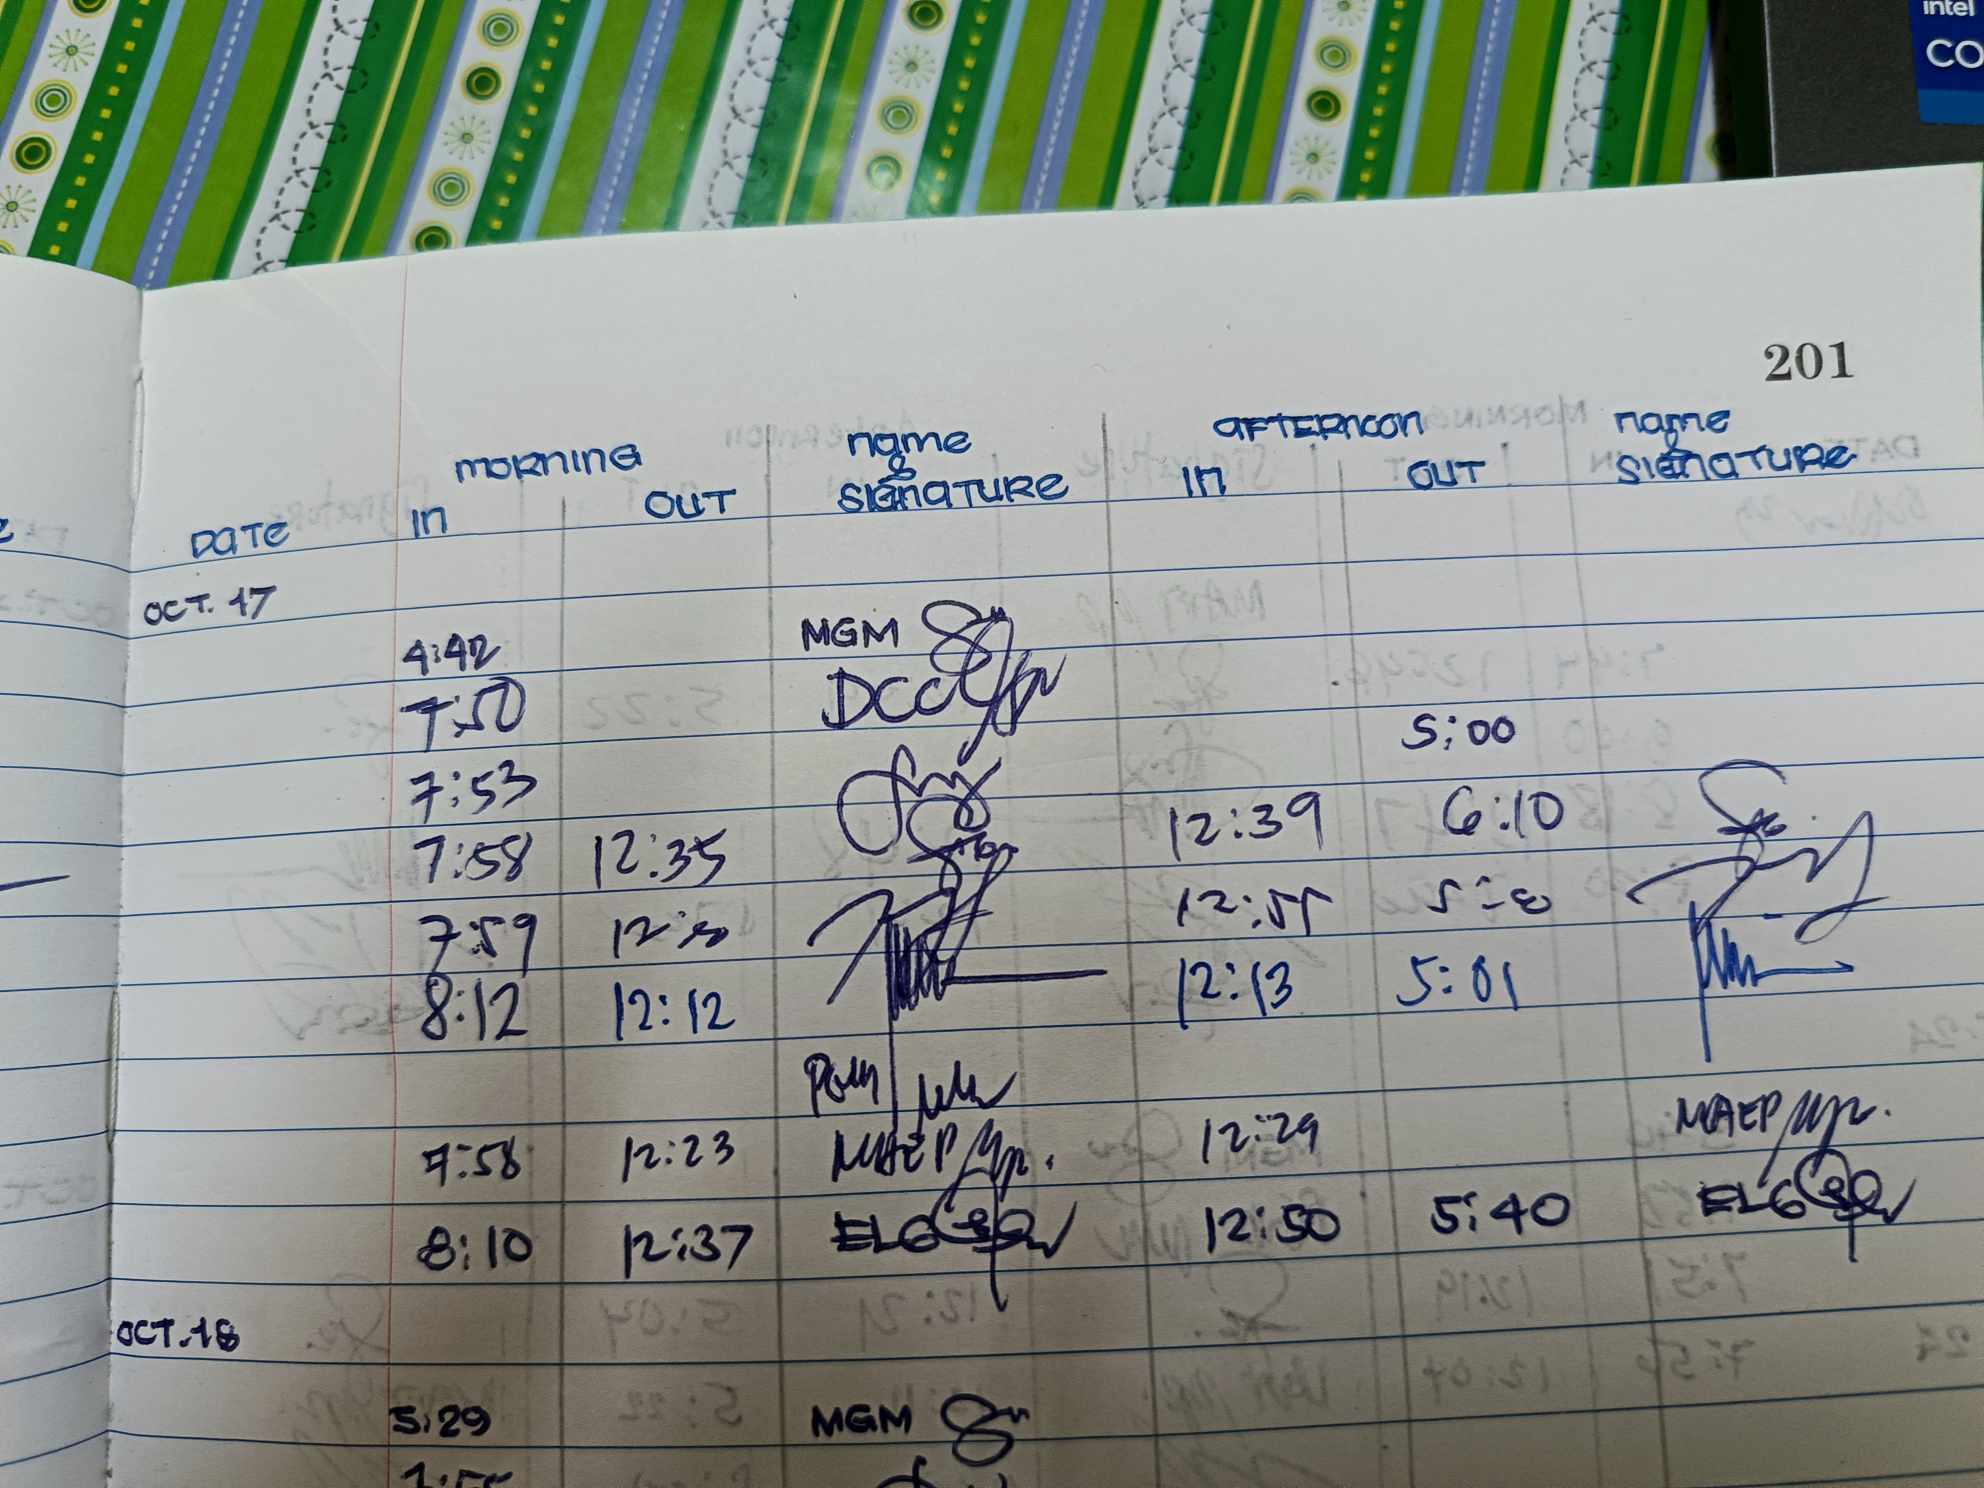 intel
CO
201
MORNING name AFTERNOON name
& &
DATE IN OUT SIGNATURE IN OUT SIGNATURE
OCT. 17
4:42 MGM
7:50 DCC
7:53 5:00
7:58 12:35 12:39 6:10
7:59 12:55
8:12 12:12 12:13 5:01
7:58 12:23 MAEP 12:29 MAEP
8:10 12:37 ELG 12:50 5:40 ELG
OCT. 18
5:29 MGM